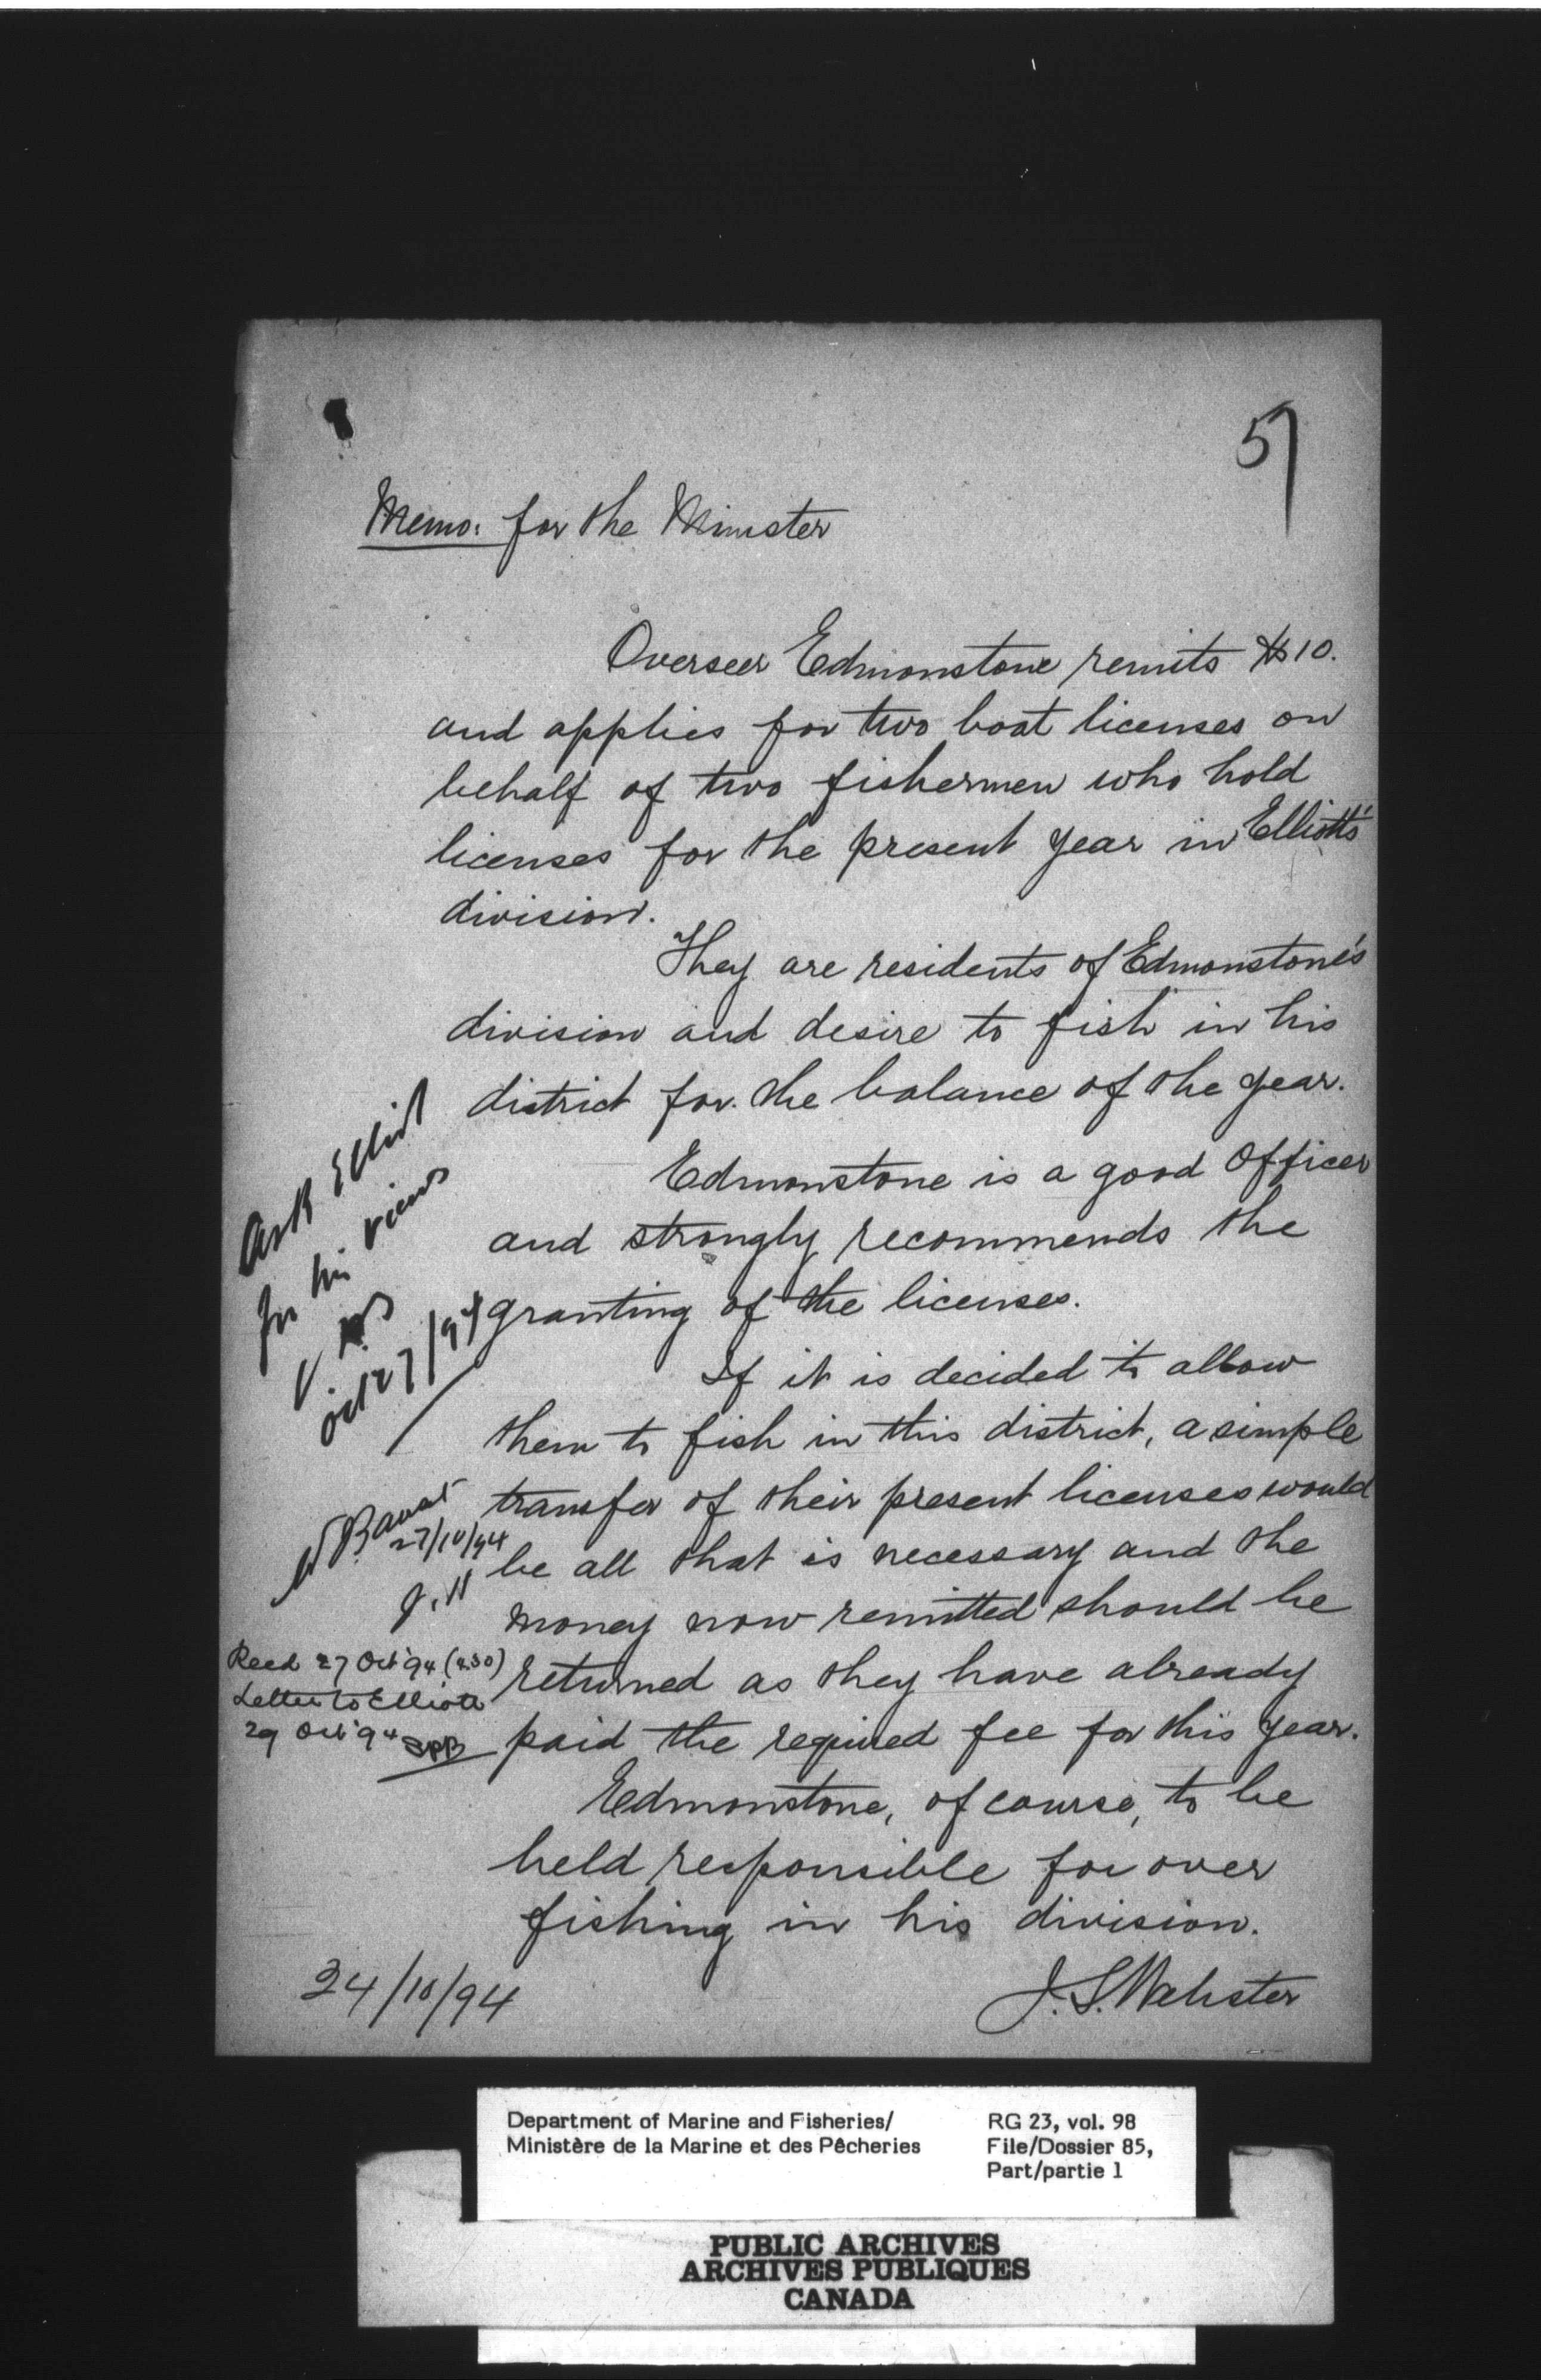 57
Memo: for the Minister
Overseer Edmonstone remits $10.
and applies for two boat licenses on
behalf of two fishermen who hold
licenses for the present year in Elliott's
division.
They are residents of Edmonstone's
division and desire to fish in his
district for the balance of the year.
Edmonstone is a good Officer
and strongly recommends the
granting of the licenses.
If it is decided to allow
them to fish in this district, a simple
transfer of their present licenses would
be all that is necessary and the
money now remitted should be
returned as they have already
paid the required fee for this year.
Edmonstone, of course, to be
held responsible for over
fishing in his division.
24/10/94
J. S. Webster
Ask Elliot
for his views
Oct 27/94
27/10/94
Recd 27 Oct '94 (4.30)
Letter to Elliott
29 Oct '94
Department of Marine and Fisheries/
Ministère de la Marine et des Pêcheries
RG 23, vol. 98
File/Dossier 85,
Part/partie 1
PUBLIC ARCHIVES
ARCHIVES PUBLIQUES
CANADA